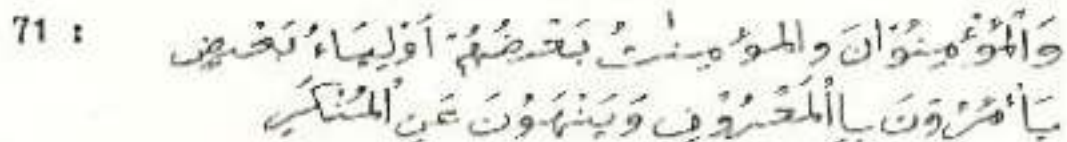 71 : وَالْمُؤْمِنُوْانَ والمؤمِنٰتُ بَعْضُهُمْ اَوْلِيَاءُ بَعْضٍ
يَأْمُرُوْنَ بِاالْمَعْرُوْفِ وَيَنْهَوْنَ عَنِ الْمُنْكَرِ